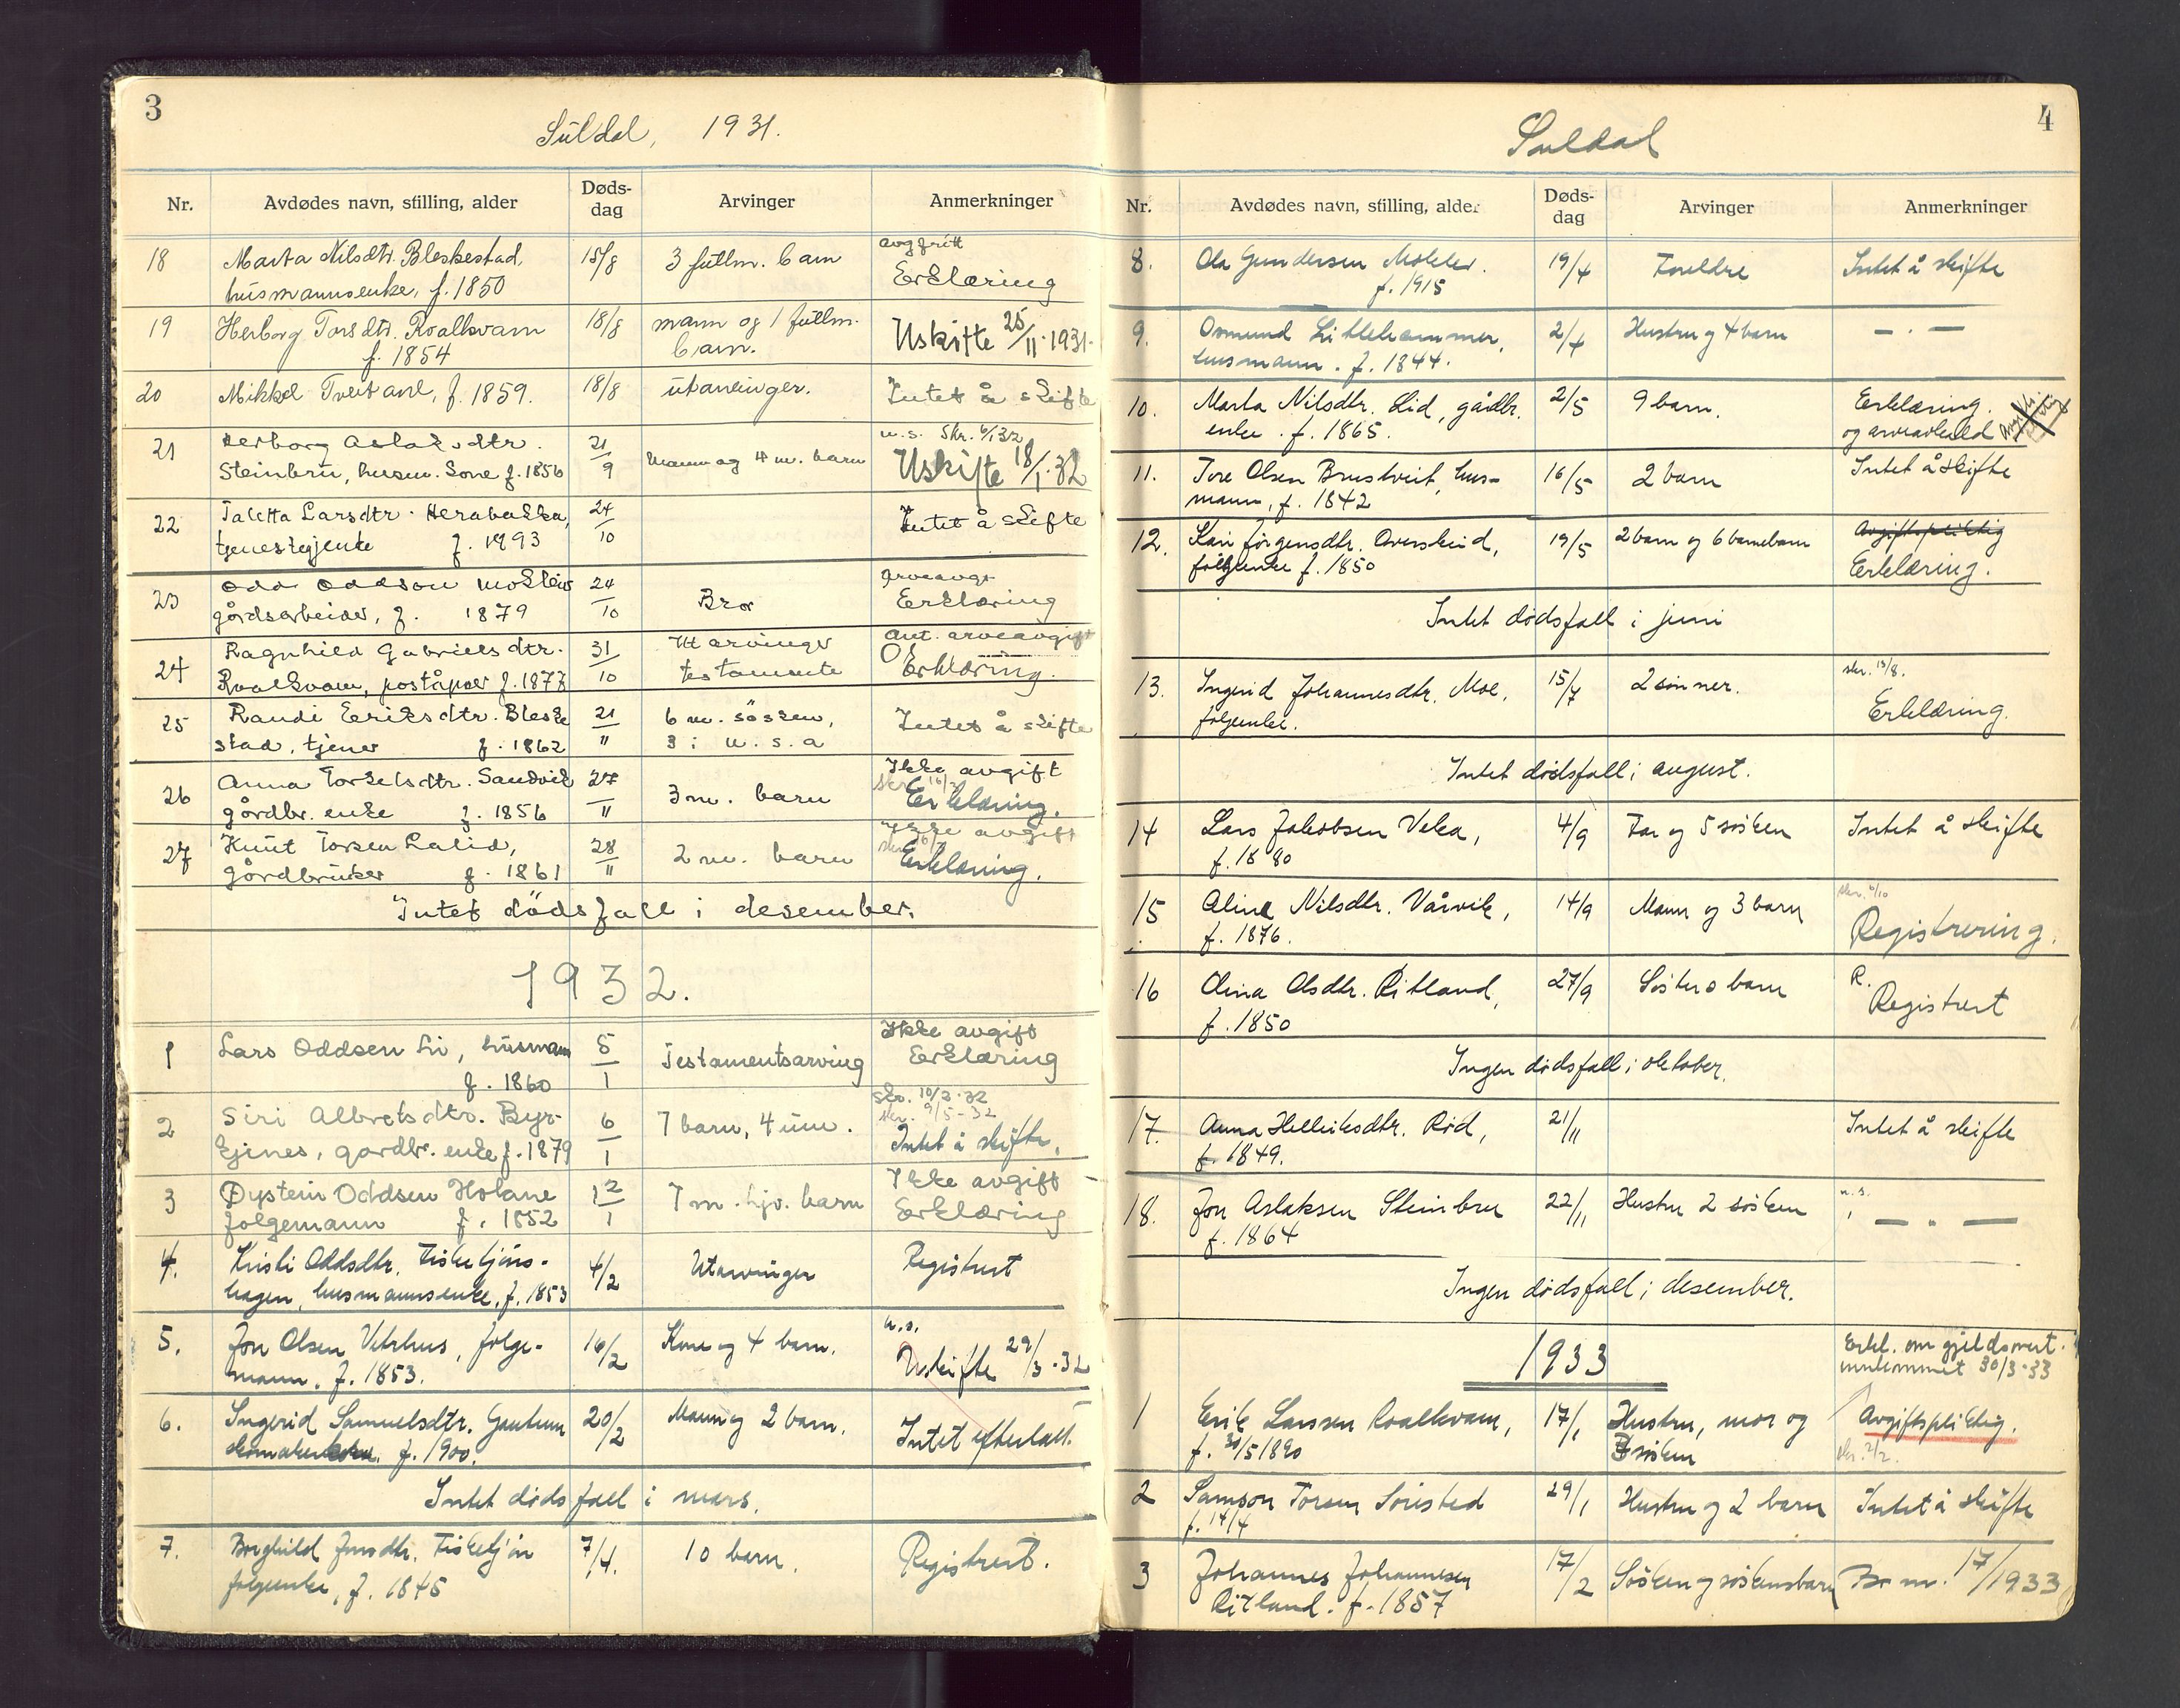 3
Suldal, 1931.
Nr. Avdødes navn, stilling, alder Døds- dag Arvinger Anmerkninger
avgfritt
18 Marta Nilsdtr. Bleskestad, 15/8 3 fullm. barn Erklæring
husmannsenke, f. 1850
19 Herborg Torsdtr. Roalkvam 18/8 mann og 1 fullm. Uskifte 25/11.1931.
f. 1854 barn.
20 Mikkel Tveitane, f. 1859. 18/8 utarvinger. Intet å skifte
u.s. Skr. 6/1 32
21 Herborg Aslaksdtr. 21/9 Mann og 4 m. barn Uskifte 18/1.32
Steinbru, husm. Kone f. 1856
22 Taletta Larsdtr. 24/10 Intet å skifte
tjenestejente f. 1893
arveavgr.
23 Odd Oddson Mokleiv 24/10 Bror Erklæring
gårdsarbeider, f. 1879
Ant. arveavgift
24 Ragnhild Gabrielsdtr. 31/10 Utarvinger Erklæring.
Roalkvam, poståpner f. 1877 testamente
25 Randi Eeriksdtr. Bleske 21/11 6 m. søsken, Intet å skifte
stad, tjener f. 1862 3 i U.S.A
Ikke avgift
26 Anna Torkelsdtr. Sandvik 27/11 3 m. barn Erklæring.
gårdbr. enke f. 1856
Ikke avgift
27 Knut Torsen Lalid, 28/11 2 m. barn Erklæring.
gårdbruker f. 1861
Intet dødsfall i desember.
1932.
Ikke avgift
1 Lars Oddsen Li, husmann 5/1 Testamentsarving Erklæring
f. 1860
skr. 10/3.32
skr. 9/5-32
2 Siri Albretsdtr. Byr- 6/1 7 barn, 4 um. Intet å skifte.
kjenes, gardbr. enke f. 1879
Ikke avgift
3 Øystein Oddsen Holane 12/1 7 m. hjv. barn Erklæring
følgemann f. 1852
4. Kristi Oddsdtr. Fisketjøns- 4/2 Utarvinger Registrert
hagen, husmannsenke, f. 1853
u.s.
5. Jon Olsen Vetrhus, følge- 16/2 Kone og 4 barn. Uskifte 29/3.32
mann. f. 1853.
6. Ingerid Samuelsdtr. Gautun 20/2 Mann og 2 barn. Intet efterlatt.
f. 1900.
Intet dødsfall i mars.
7. Borghild Jonsdtr. Fisketjøn 7/4. 10 barn. Registrert.
følgeenke, f. 1845
4
Suldal
Nr. Avdødes navn, stilling, alder Døds- dag Arvinger Anmerkninger
8. Ola Gundersen Mokleiv. 19/4 Foreldre Intet å skifte
f. 1915
9. Osmund Litlehammer, 2/4 Hustru og 4 barn — . —
husmann. f. 1844.
10. Marta Nilsdtr. Lid, gårdbr. 2/5 9 barn. Erklæring.
enke. f. 1865. og arveavheld
11. Tore Olsen Brustveit, hus- 16/5 2 barn Intet å skifte
mann, f. 1842
12. Kari Jørgensdtr. Overskeid, 19/5 2 barn og 6 barnebarn Avgiftspliktig
følgeenke f. 1850 Erklæring.
Intet dødsfall i juni
skr. 13/8.
13. Ingerid Johannesdtr. Moe, 15/7 2 sønner. Erklæring.
følgeenke.
Intet dødsfall i august.
14 Lars Jakobsen Veka, 4/9 Far og 5 søsken Intet å skifte
f. 1880
skr. 6/10
15 Aline Nilsdtr. Vårvik, 14/9 Mann og 3 barn Registrering.
f. 1876.
R.
16 Olina Olsdtr. Ritland, 27/9 Søsters barn Registrert
f. 1850
Ingen dødsfall i oktober.
17. Anna Helleiksdtr. Rød, 21/11 Intet å skifte
f. 1849.
u.s.
18. Jon Aslaksen Steinbru 22/11 Hustru 2 søsken — . —
f. 1864
Ingen dødsfall i desember.
1933
Erkl. om gjeldsovert.
innkommet 30/3.33
1 Eirik Larssen Roalkvam, 17/1 Hustru, mor og Avgiftspliktig.
f. 30/5 1890 søsken skr. 2/2.
2 Samson Torsen Sørestad 29/1 Hustru og 2 barn Intet å skifte
f. 14/4
3 Johannes Johannesen 17/2 Søsken og søskensbarn 17/1933
Ritland. f. 1857